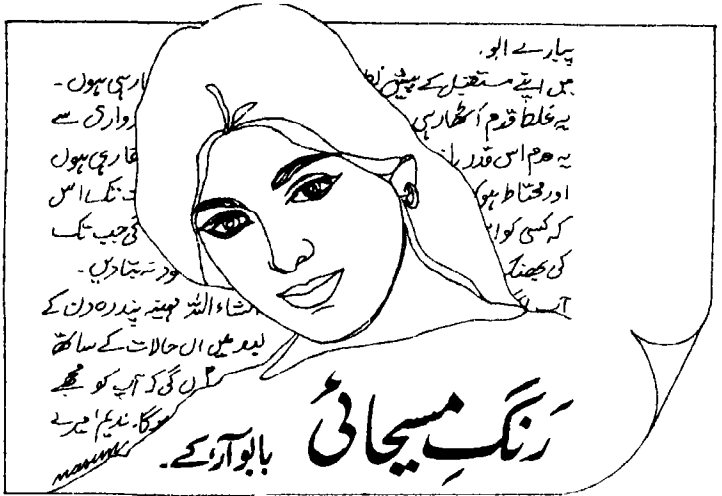 پیارے ابو۔
میں اپنے مستقبل کے پیش نظ ارہی ہوں۔
یہ غلط قدم اُٹھا رہی رواری سے
یہ قدم اس قدر را ٹھا رہی ہوں
اور محتاط ہوک تک اس
کہ کسی کو ا کی جب تک
کی بھنک ود نہ بتا دیں۔
آپ انشاء اللہ مہینہ پندرہ دن کے
بعد میں ان حالات کے ساتھ
ں گی کہ آپ کو مجھے
ہوگا۔ ندیم! میرے
رَنگِ مسیحائی
بابو آر۔ کے۔